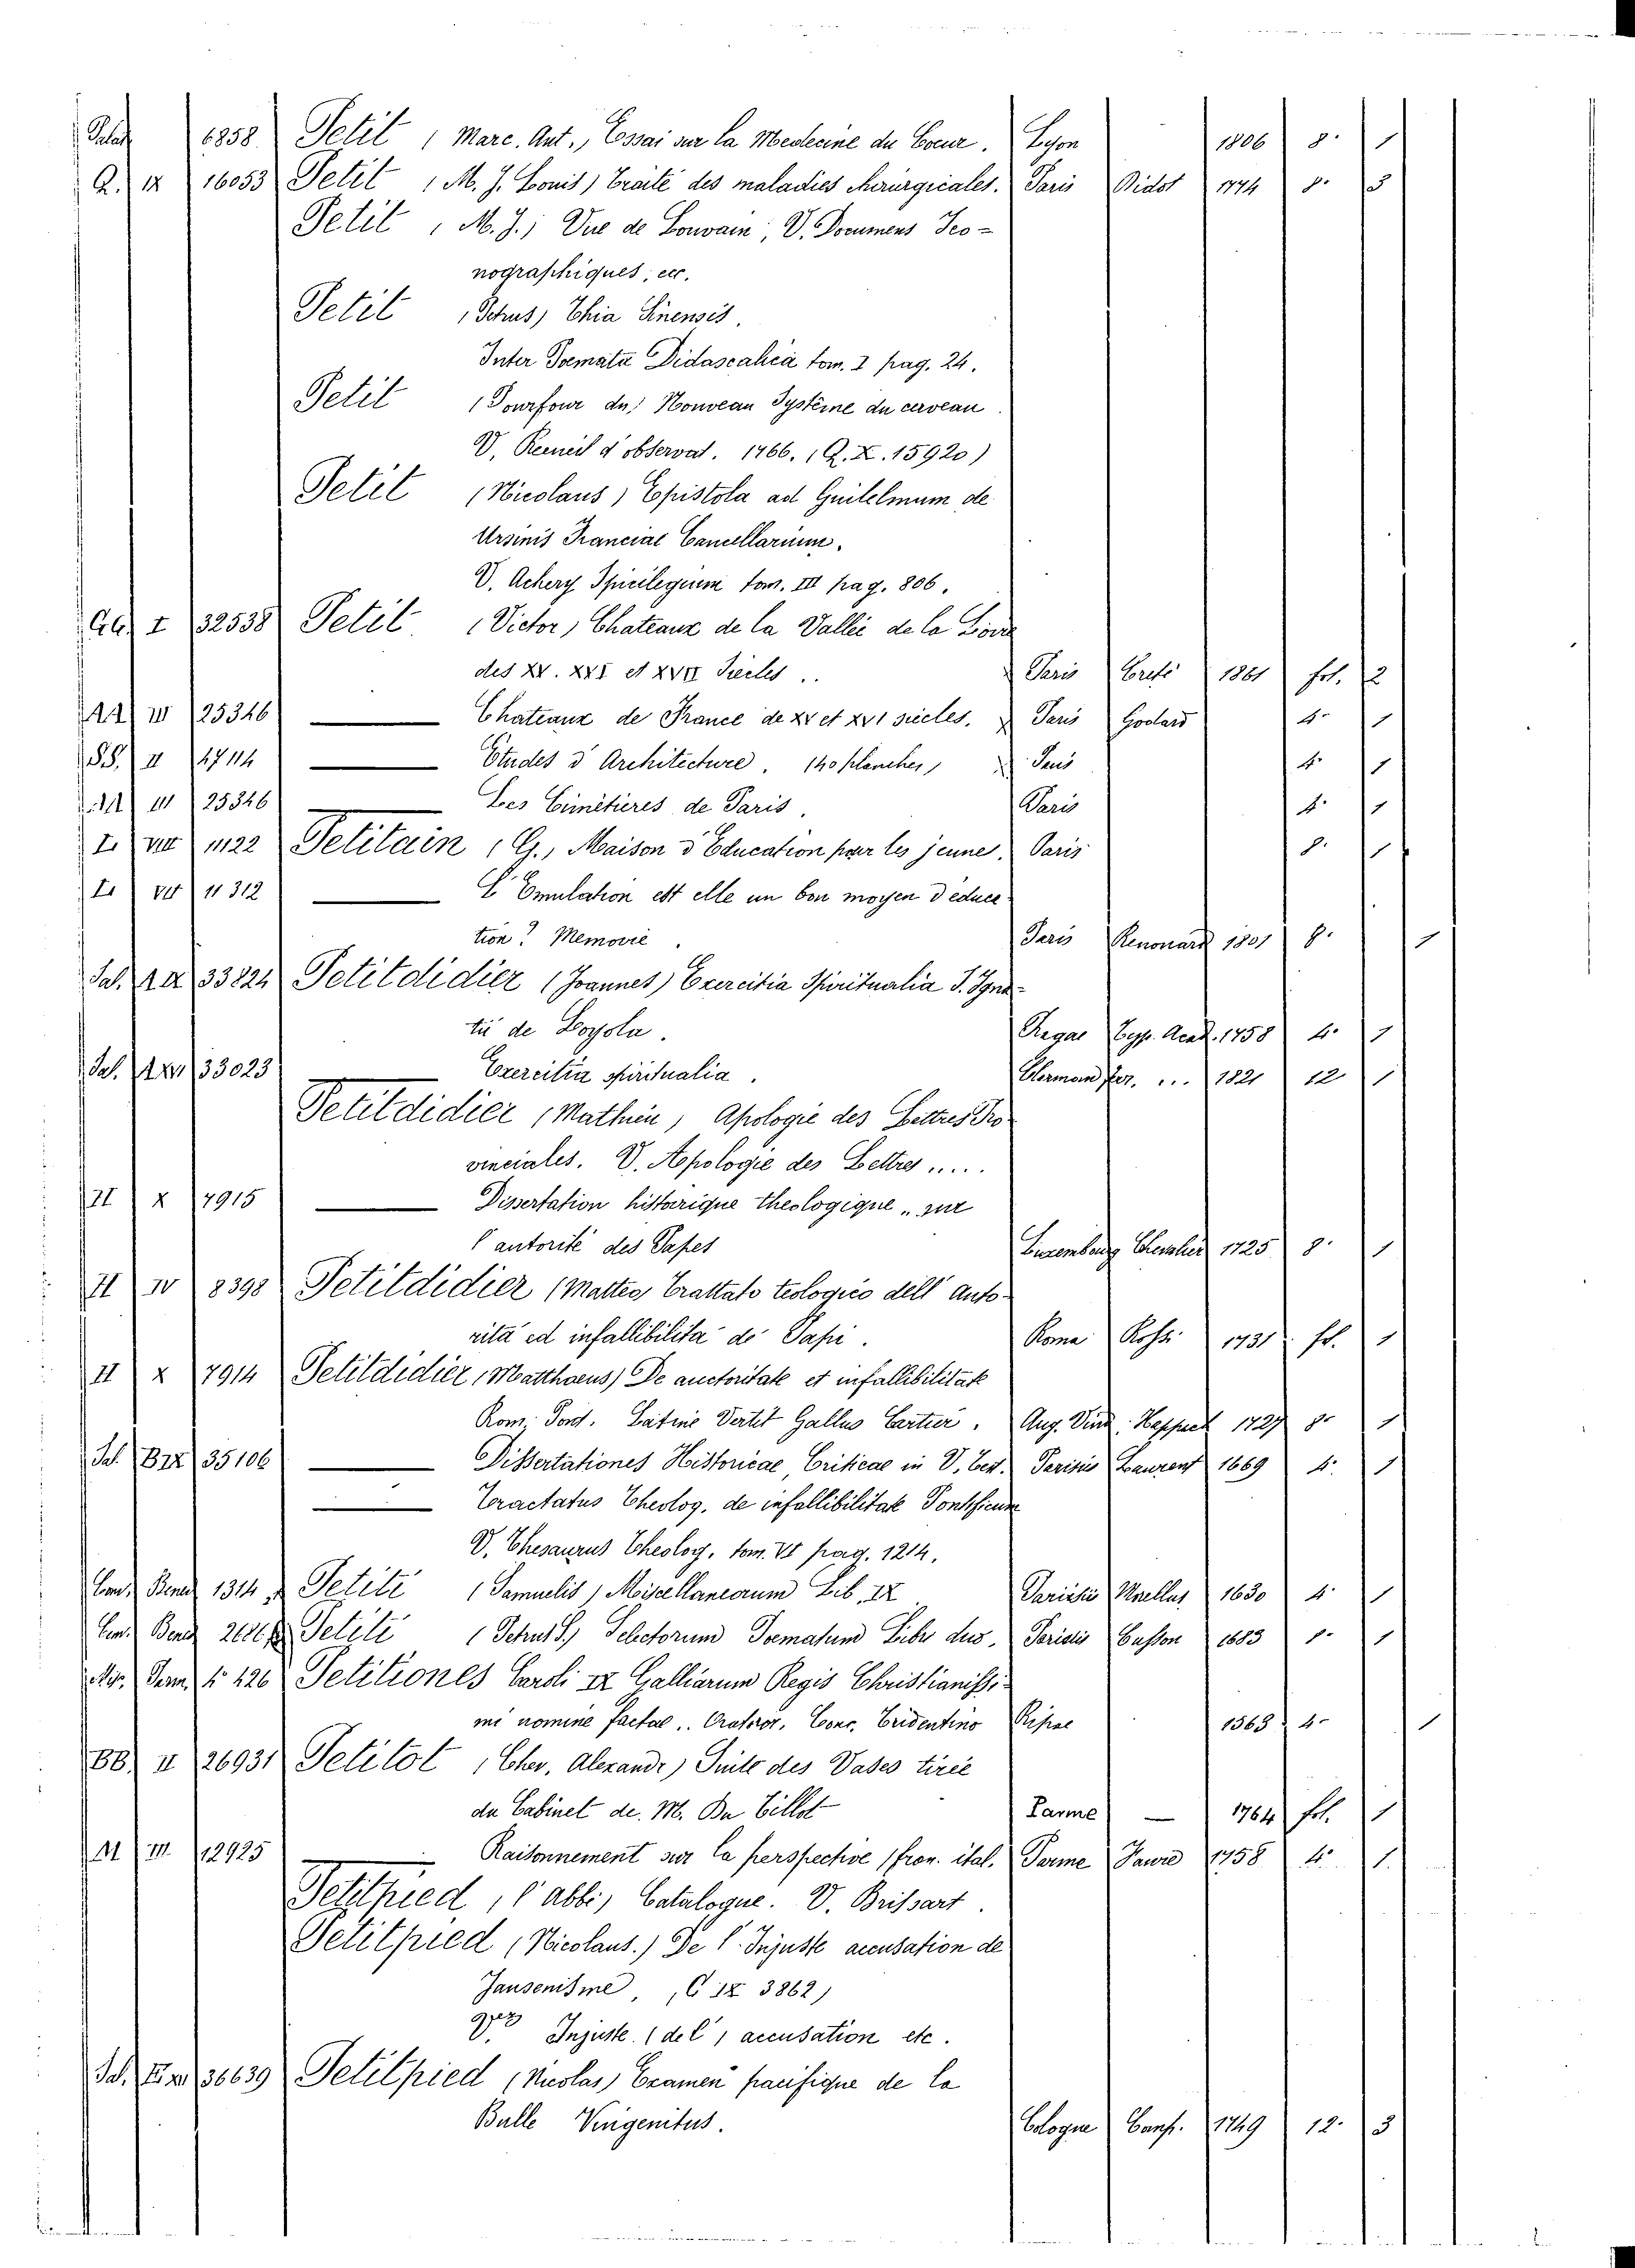 6858 Petit (Marc. Ant., Essai sur la Medecine du Coeur. Lyon 1806 8. 1
Q. IX 16053 Petit (M. J. Louis) Traité des maladies chirurgicales. Paris Didot 1774 8. 3
Petit (M. J.) Vue de Louvain; V. Documens Ico-
nographiques, etc.
Petit (Petrus) Thia Sinensis.
Inter Poemata Didascalica tom. I pag. 24.
Petit (Pourfour du) Nouveau Système du cerveau
V. Recueil d'observat. 1766. (Q. X. 15920)
Petit (Nicolaus) Epistola ad Guilelmum de
Ursinis Franciae Cancellarium.
V. Achery Spicilegium tom. III pag. 806.
I 32538 Petit (Victor) Chateaux de la Vallée de la Loire
des XV. XVI et XVII Siècles .. Paris 1861 fol. 2
AA III 25346 — Chateaux de France de XV et XVI siècles. Paris Godard 4. 1
SS. II — Etudes d'Architecture. 140 planches, Paris 4. 1
III 25346 — Les Cimétières de Paris. Paris 4. 1
I. VII 1122 Petitain (G., Maison d'Education pour les jeunes. Paris 8. 1
I. VII 11312 — L'Emulation est elle un bon moyen d'educa-
tion? Memoire. Paris Renouard 1801 8. 1
33824 Petitdidier (Joannes) Exercitia Spiritualia S. Igna-
tii de Loyola. Pragae Typ. Acad. 1758 4. 1
33023 Exercitia spiritualia. Clermond fer. ... 1821 12 1
Petitdidier (Mathieu, Apologie des Lettres Pro-
vinciales. V. Apologie des Lettres ....
II X 7915 — Dissertation historique theologique .. sur
l'autorité des Papes Luxembourg Chevalier 1725 8. 1
II IV 8398 Petitdidier (Matteo) Trattato teologico dell' Auto-
rità ed infallibilità de Papi. Roma 1731 fol. 1
II X 7914 Petitdidier (Matthaeus) De auctoritate et infallibilitate
Rom. Pont. Latine Vertit Gallus Cartier. Aug. Vind. 1727 8. 1
35106 — Dissertationes Historicae, Criticae in V. Test. Parisiis Laurent 1669 4. 1
— Tractatus Theolog. de infallibilitate Pontificum
V. Thesaurus Theolog. tom. VI pag. 1214.
1314 Petiti (Samuelis) Miscellaneorum Lib. IX Parisiis Morellus 1630 4 1
Petiti (Petrus S.) Selectorum Poematum Libr. duo. Parisiis Cusson 1683 8. 1
126 Petitiones Caroli IX Galliarum Regis Christianissi-
mi nomine factae .. Orator. Conc. Tridentino Ripae 1563 4. 1
BB II 26931 Petitot (Cher. Alexandr) Suite des Vases tirée
du Cabinet de. M. Du Tillot Parme — 1764 fol. 1
III. 12925 — Raisonnement sur la perspective (fran. ital. Parme Faure 1758 4. 1.
Petitpied (l'abbé) Catalogue. V. Brissart.
Petitpied (Nicolaus.) De l'Injuste accusation de
Jansenisme, (C IX 3862)
V. Injuste. (de l') accusation etc.
36639 Petitpied (Nicolas) Examen pacifique de la
Bulle Unigenitus. Cologne Comp. 1749 12. 3